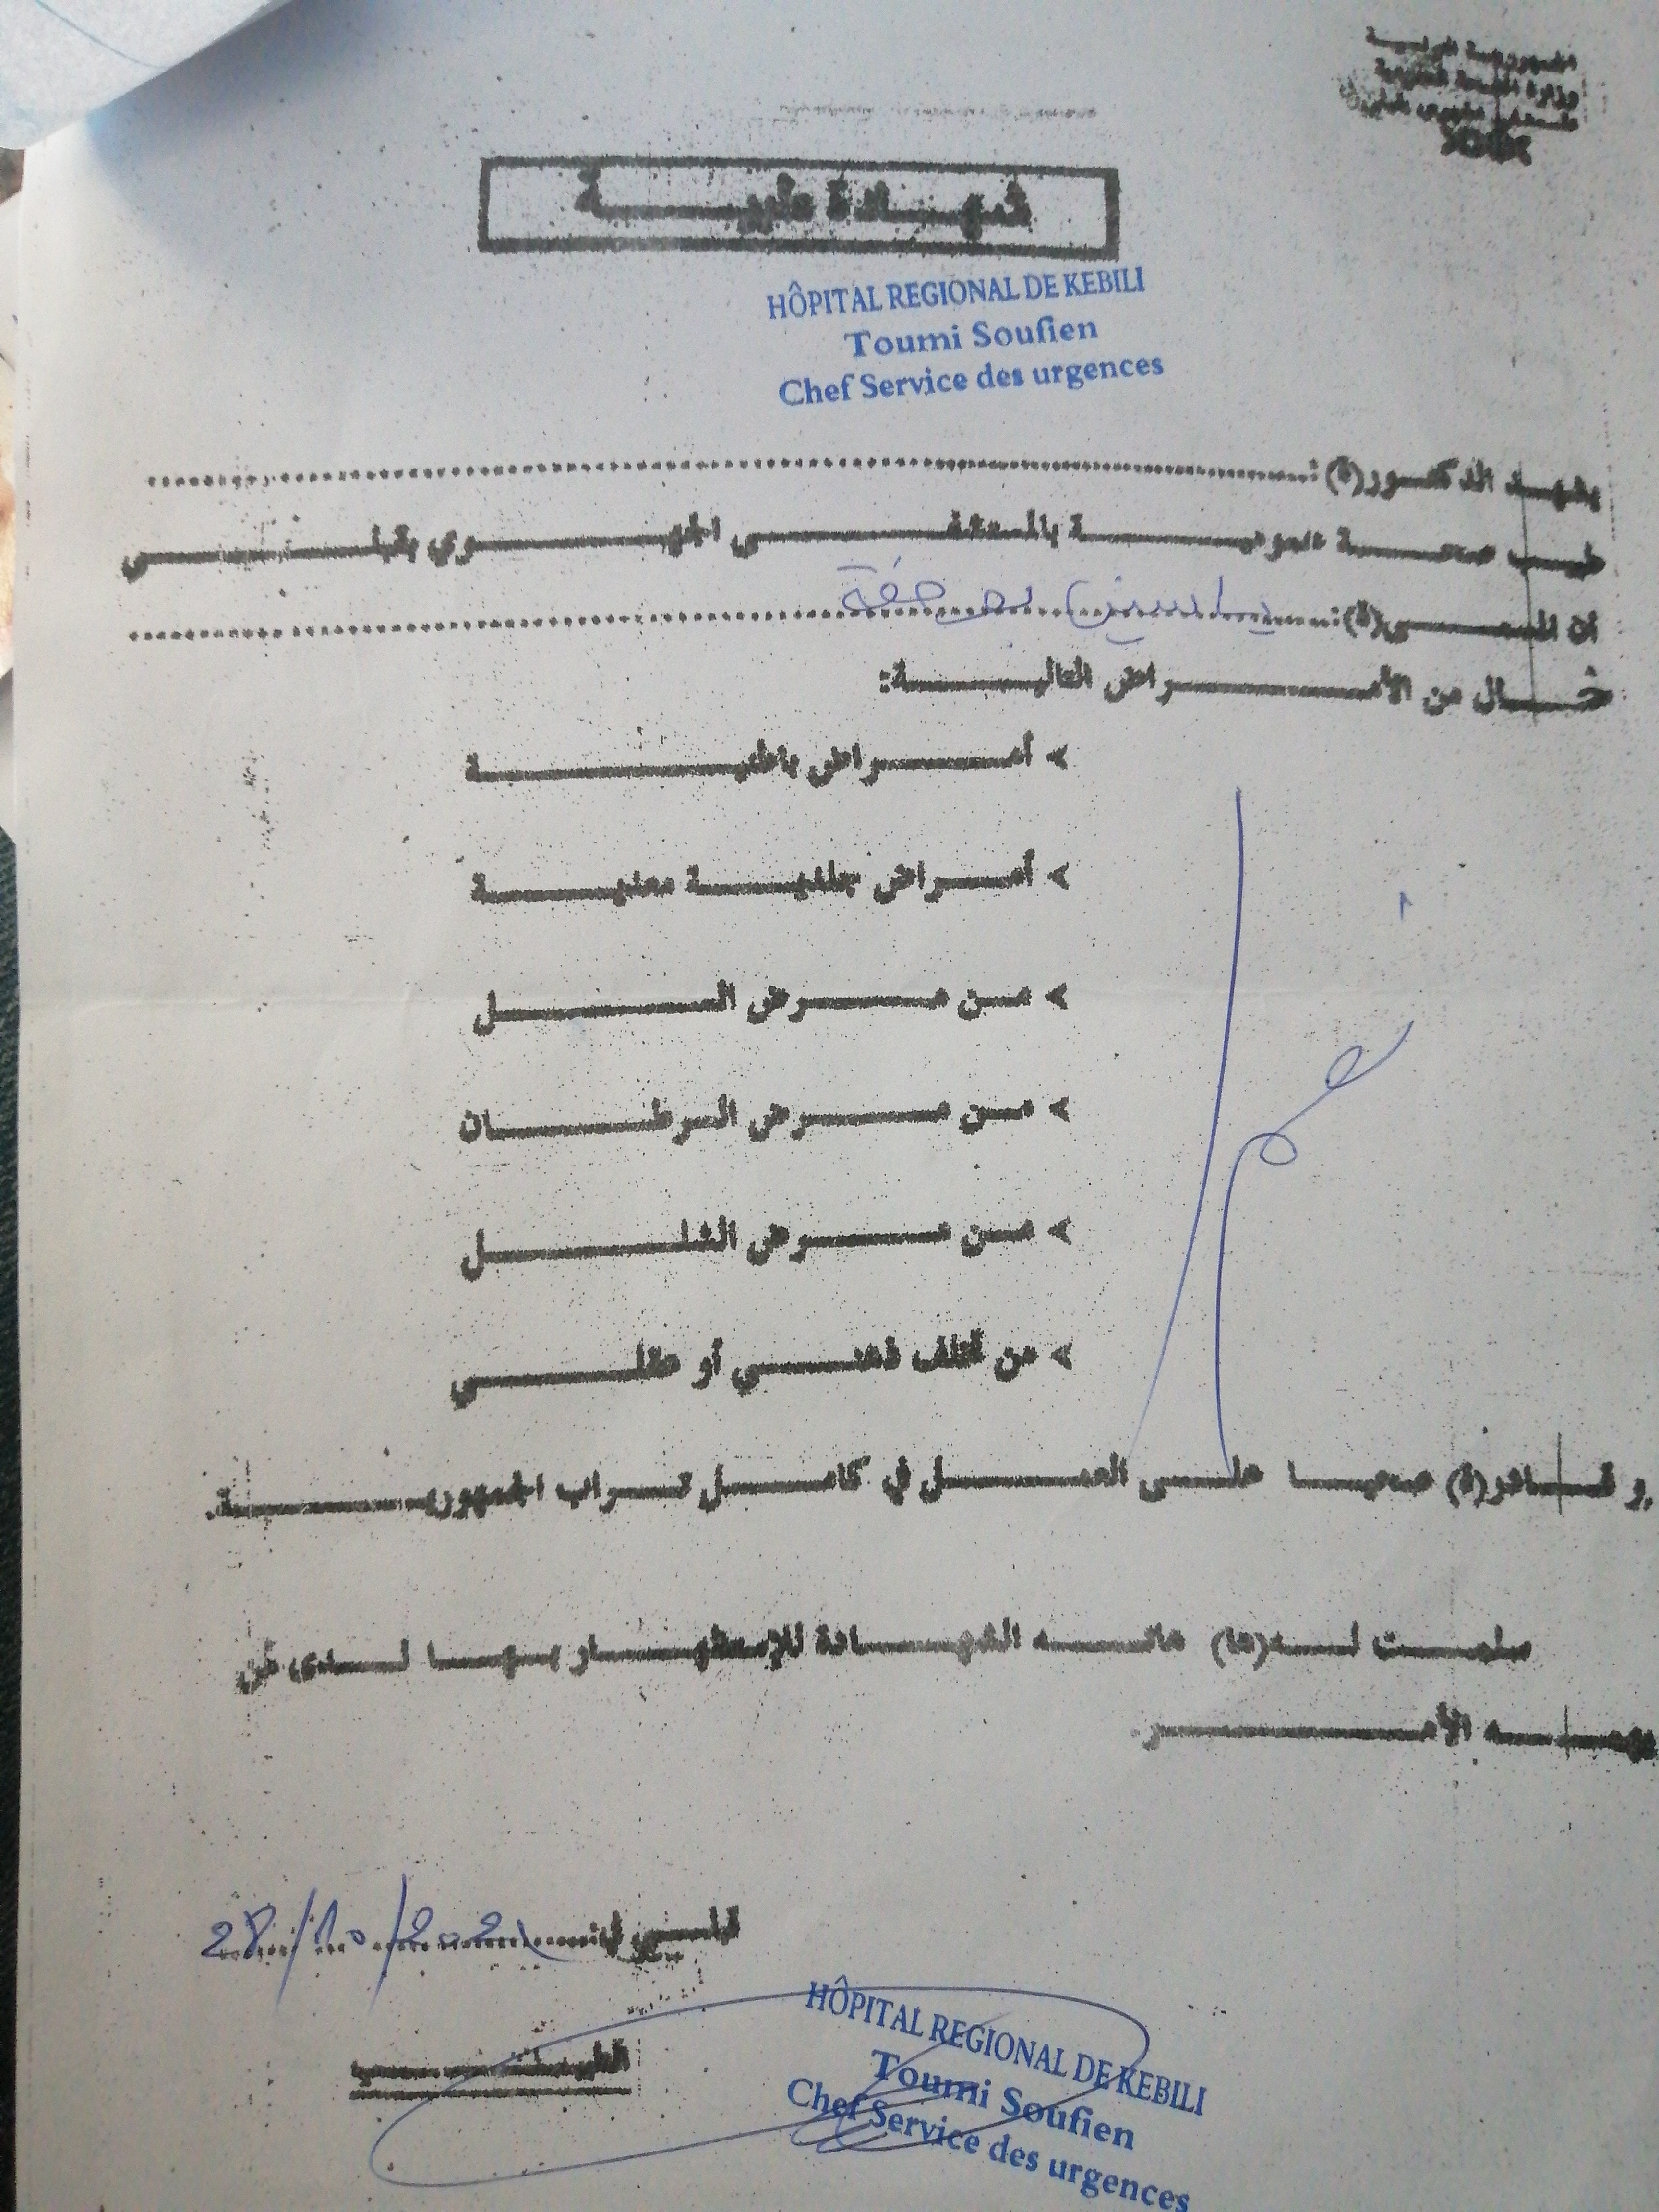 الجمهورية التونسية
وزارة الصحة العمومية
شهادة طبية
HÔPITAL REGIONAL DE KEBILI
Toumi Soufien
Chef Service des urgences
يشهد الدكتور(ة) :
طبيب صحة عمومية بالمستشفى الجهوي بقبلي
أن المسمى(ة): ياسين
خال من الأمراض التالية:
> أمراض باطنية
> أمراض جلدية معدية
> من مرض السل
> من مرض السرطان
> من مرض الشلل
> من تخلف ذهني أو عقلي
و قادر(ة) صحيا على العمل في كامل تراب الجمهورية.
سلمت له(ها) هاته الشهادة للإستظهار بها لدى من
يهمه الأمر.
قبلي في: 28/10/2021
الطبيب
HÔPITAL REGIONAL DE KEBILI
Toumi Soufien
Chef Service des urgences